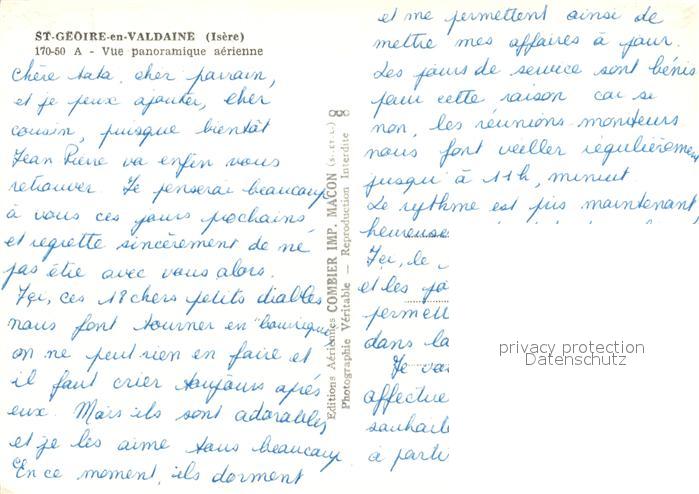 ST-GEOIRE-en-VALDAINE (Isère)
170-50 A - Vue panoramique aérienne
Chère tata, cher parrain,
et je peux ajouter, cher
cousin, puisque bientôt
Jean Pierre va enfin vous
retrouver. Je penserai beaucoup
à vous ces jours prochains
et regrette sincèrement de ne
pas être avec vous alors.
Ici, ces 18 chers petits diables
nous font tourner en "bourrique"
on ne peut rien en faire et
il faut crier toujours après
eux. Mais ils sont adorables
et je les aime tous beaucoup.
En ce moment, ils dorment
Editions Aériennes COMBIER IMP. MACON (S.-et-L.)
Photographie Véritable — Reproduction Interdite
et me permettent ainsi de
mettre mes affaires à jour.
Les jours de service sont bénis
pour cette raison car si
non, les réunions moniteurs
nous font veiller régulièrement
jusqu'à 11h, minuit
Le rythme est pris maintenant,
heureuse
Ici, le
et les
permett
dans la
Je
affectue
souhait
à parti
privacy protection
Datenschutz